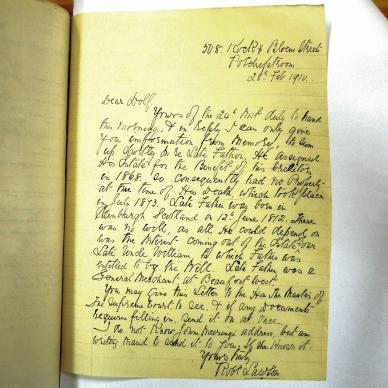 508 Kock & Bloem Street
Potchefstroom
28th Feb 1910.
Dear Dolf,
Yours of the 24th Inst duly to hand
this morning, & in reply I can only give
You information from Memory, to sum
up shortly In re Late Father, He assigned
His Estate for the Benefit of his Creditors
in 1868. So consequently had no Property
at the time of His Death which took place
in July 1873. Late Father was born in
Edenburgh Scotland on 12th June 1812. There
was no will, as all He could depend on
was the Interest coming out of the Estate our
Late Uncle William, to which Father was
entitled to by the Will. Late Father was a
General Merchant at Beaufort West.
You may give this Letter to the Master of
the Supreme Court to see. & if any Documents
require filling in. send it on at once.
I do not know address, but am
writing Maud to send it to You, if she knows it.
Yours truly
Robt Lawton